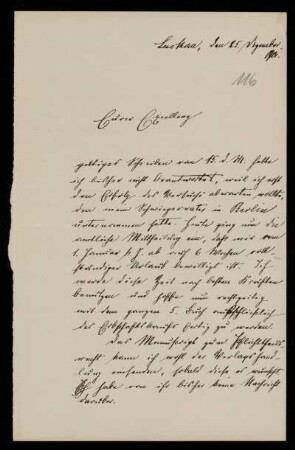 Luckau, den 25. Dezember
116
Eurer Excellenz
gütiges Schreiben vom d. M. hatte
ich bisher nicht beantwortet, weil ich erst
den Erfolg des Versuchs abwarten wollte,
den mein Schwiegervater in Berlin
unternommen hatte. Heute ging mir die
amtliche Mittheilung ein, daß mir vom
1. Januar ab auf 6 Wochen
Urlaub bewilligt ist. Ich
werde diese Zeit nach besten Kräften
benützen und hoffe nun rechtzeitig
mit dem ganzen 5. Buch
des Erbschaftskaufs fertig zu werden.
Das Manuskript zum Pflichttheils-
recht kann ich wohl der Verlagshand-
lung einsenden, sobald diese es wünscht.
Ich habe von ihr bisher keine Nachricht
darüber.